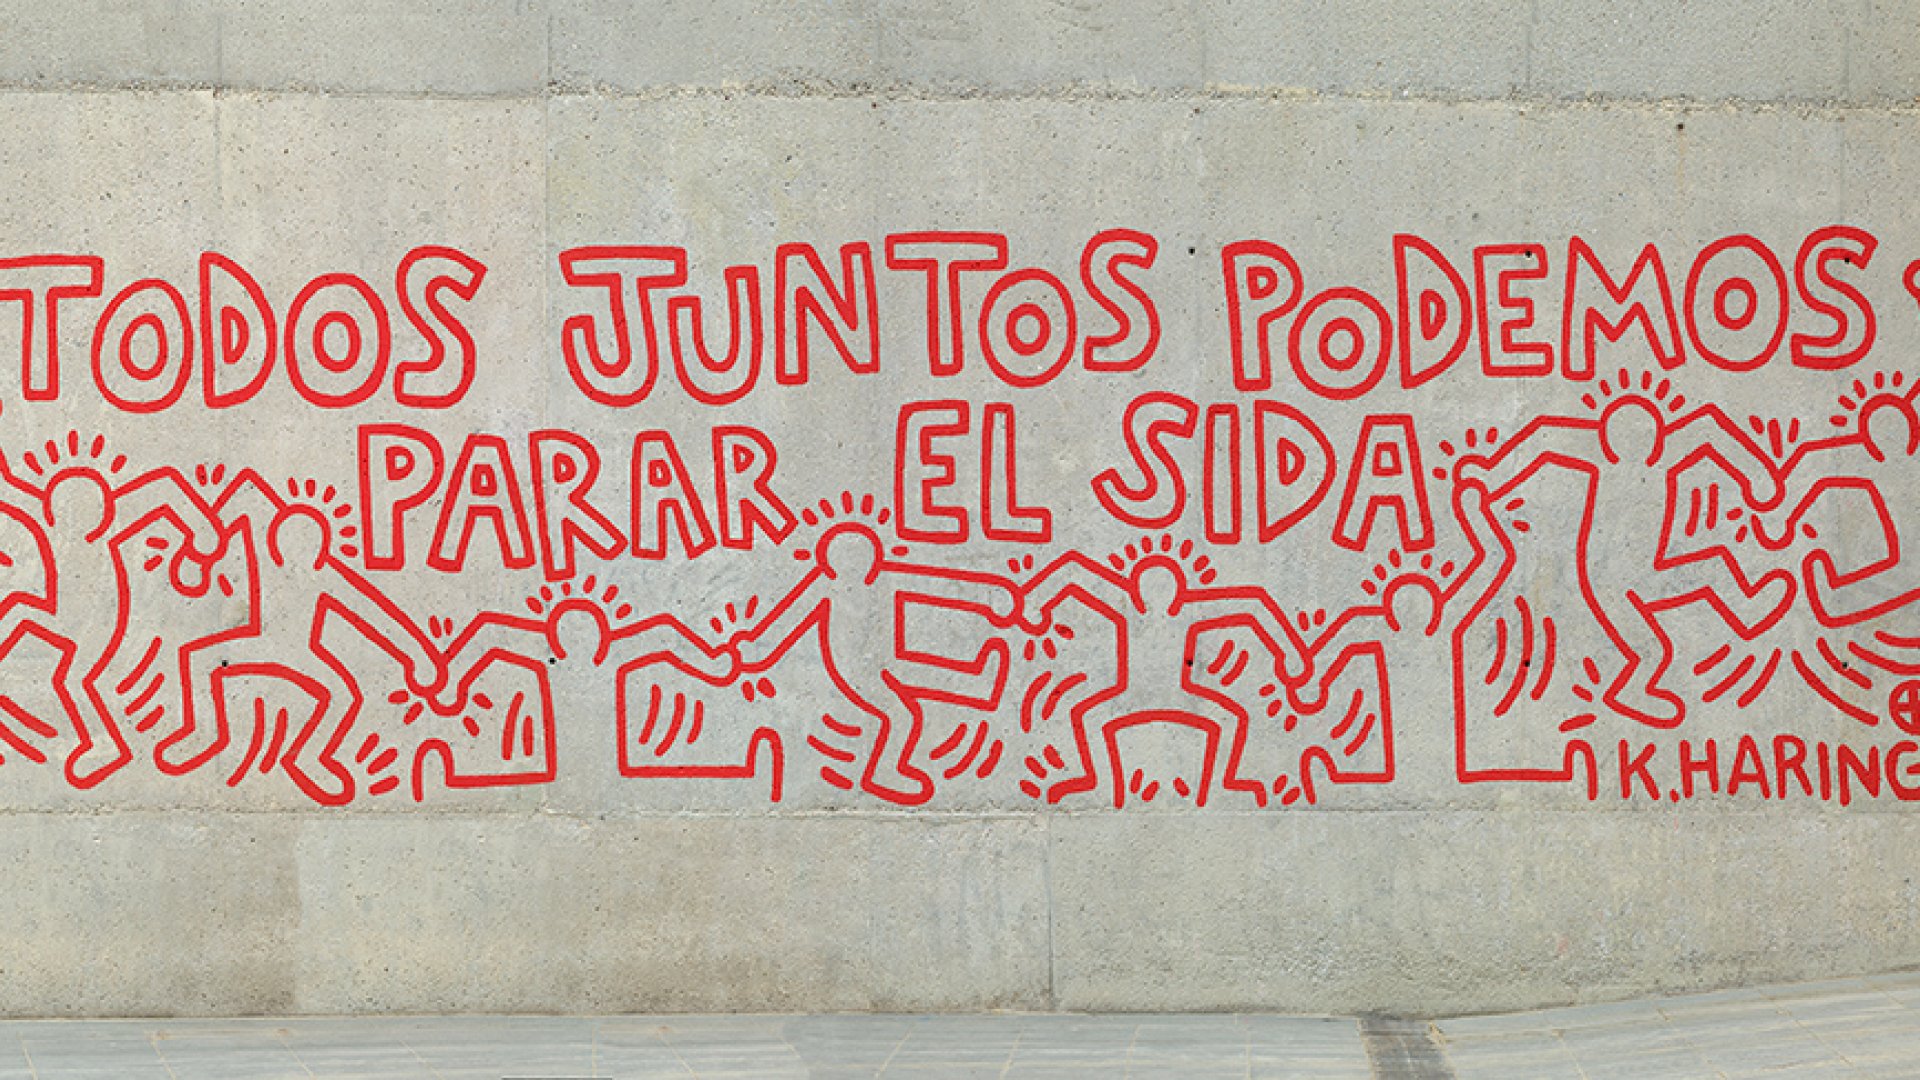 TODOS JUNTOS PODEMOS
PARAR EL SIDA
K.HARING